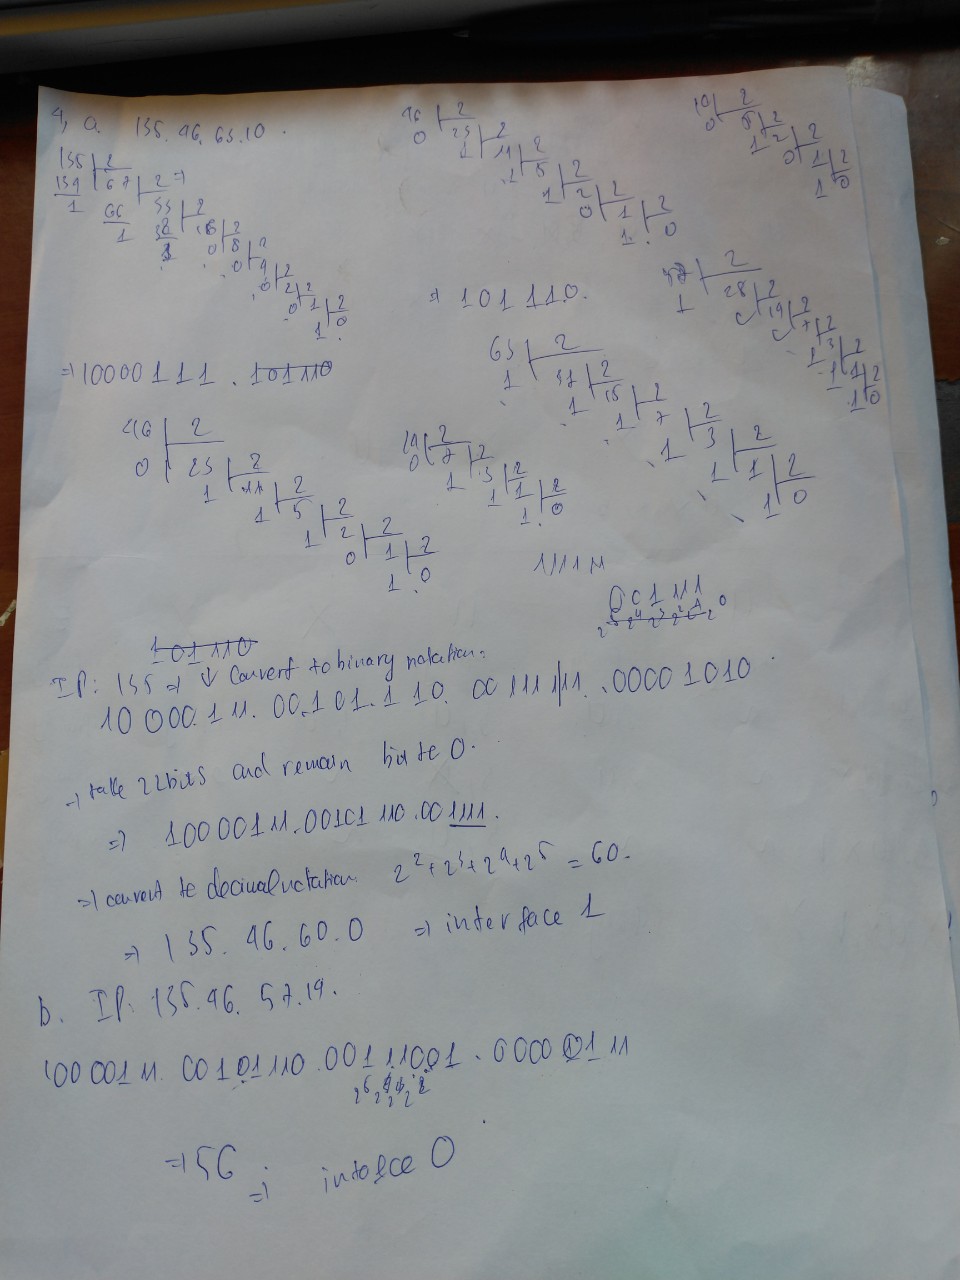 4, a. 135. 46. 63. 10.
135 2
134 67 2 =>
1 66 33 2
1 32 16 2
1 0 8 2
0 4 2
0 2 2
0 1 2
1 0
=> 10000111 . 101110
46 2
0 23 2
1 11 2
1 5 2
1 2 2
0 1 2
1 0
=> 101110.
10 2
0 5 2
1 2 2
0 1 2
1 0
57 2
1 28 2
0 14 2
0 7 2
1 3 2
1 1 2
1 0
63 2
1 31 2
1 15 2
1 7 2
1 3 2
1 1 2
1 0
46 2
0 23 2
1 11 2
1 5 2
1 2 2
0 1 2
1 0
14 2
0 7 2
1 3 2
1 1 2
1 0
111111
001111
101110
IP: 135 => ↓ Convert to binary notation:
10000111. 00101110. 00111111. 00001010
=> take 22 bits and remain bit te 0.
=> 10000111.00101110.001111.
=> convert te decimal notation 2² + 2³ + 2⁴ + 2⁵ = 60.
=> 135. 46. 60. 0 => interface 1
b. IP: 135. 46. 57. 14.
10000111. 00101110. 00111001. 00000111
=> 56
=> inteface 0